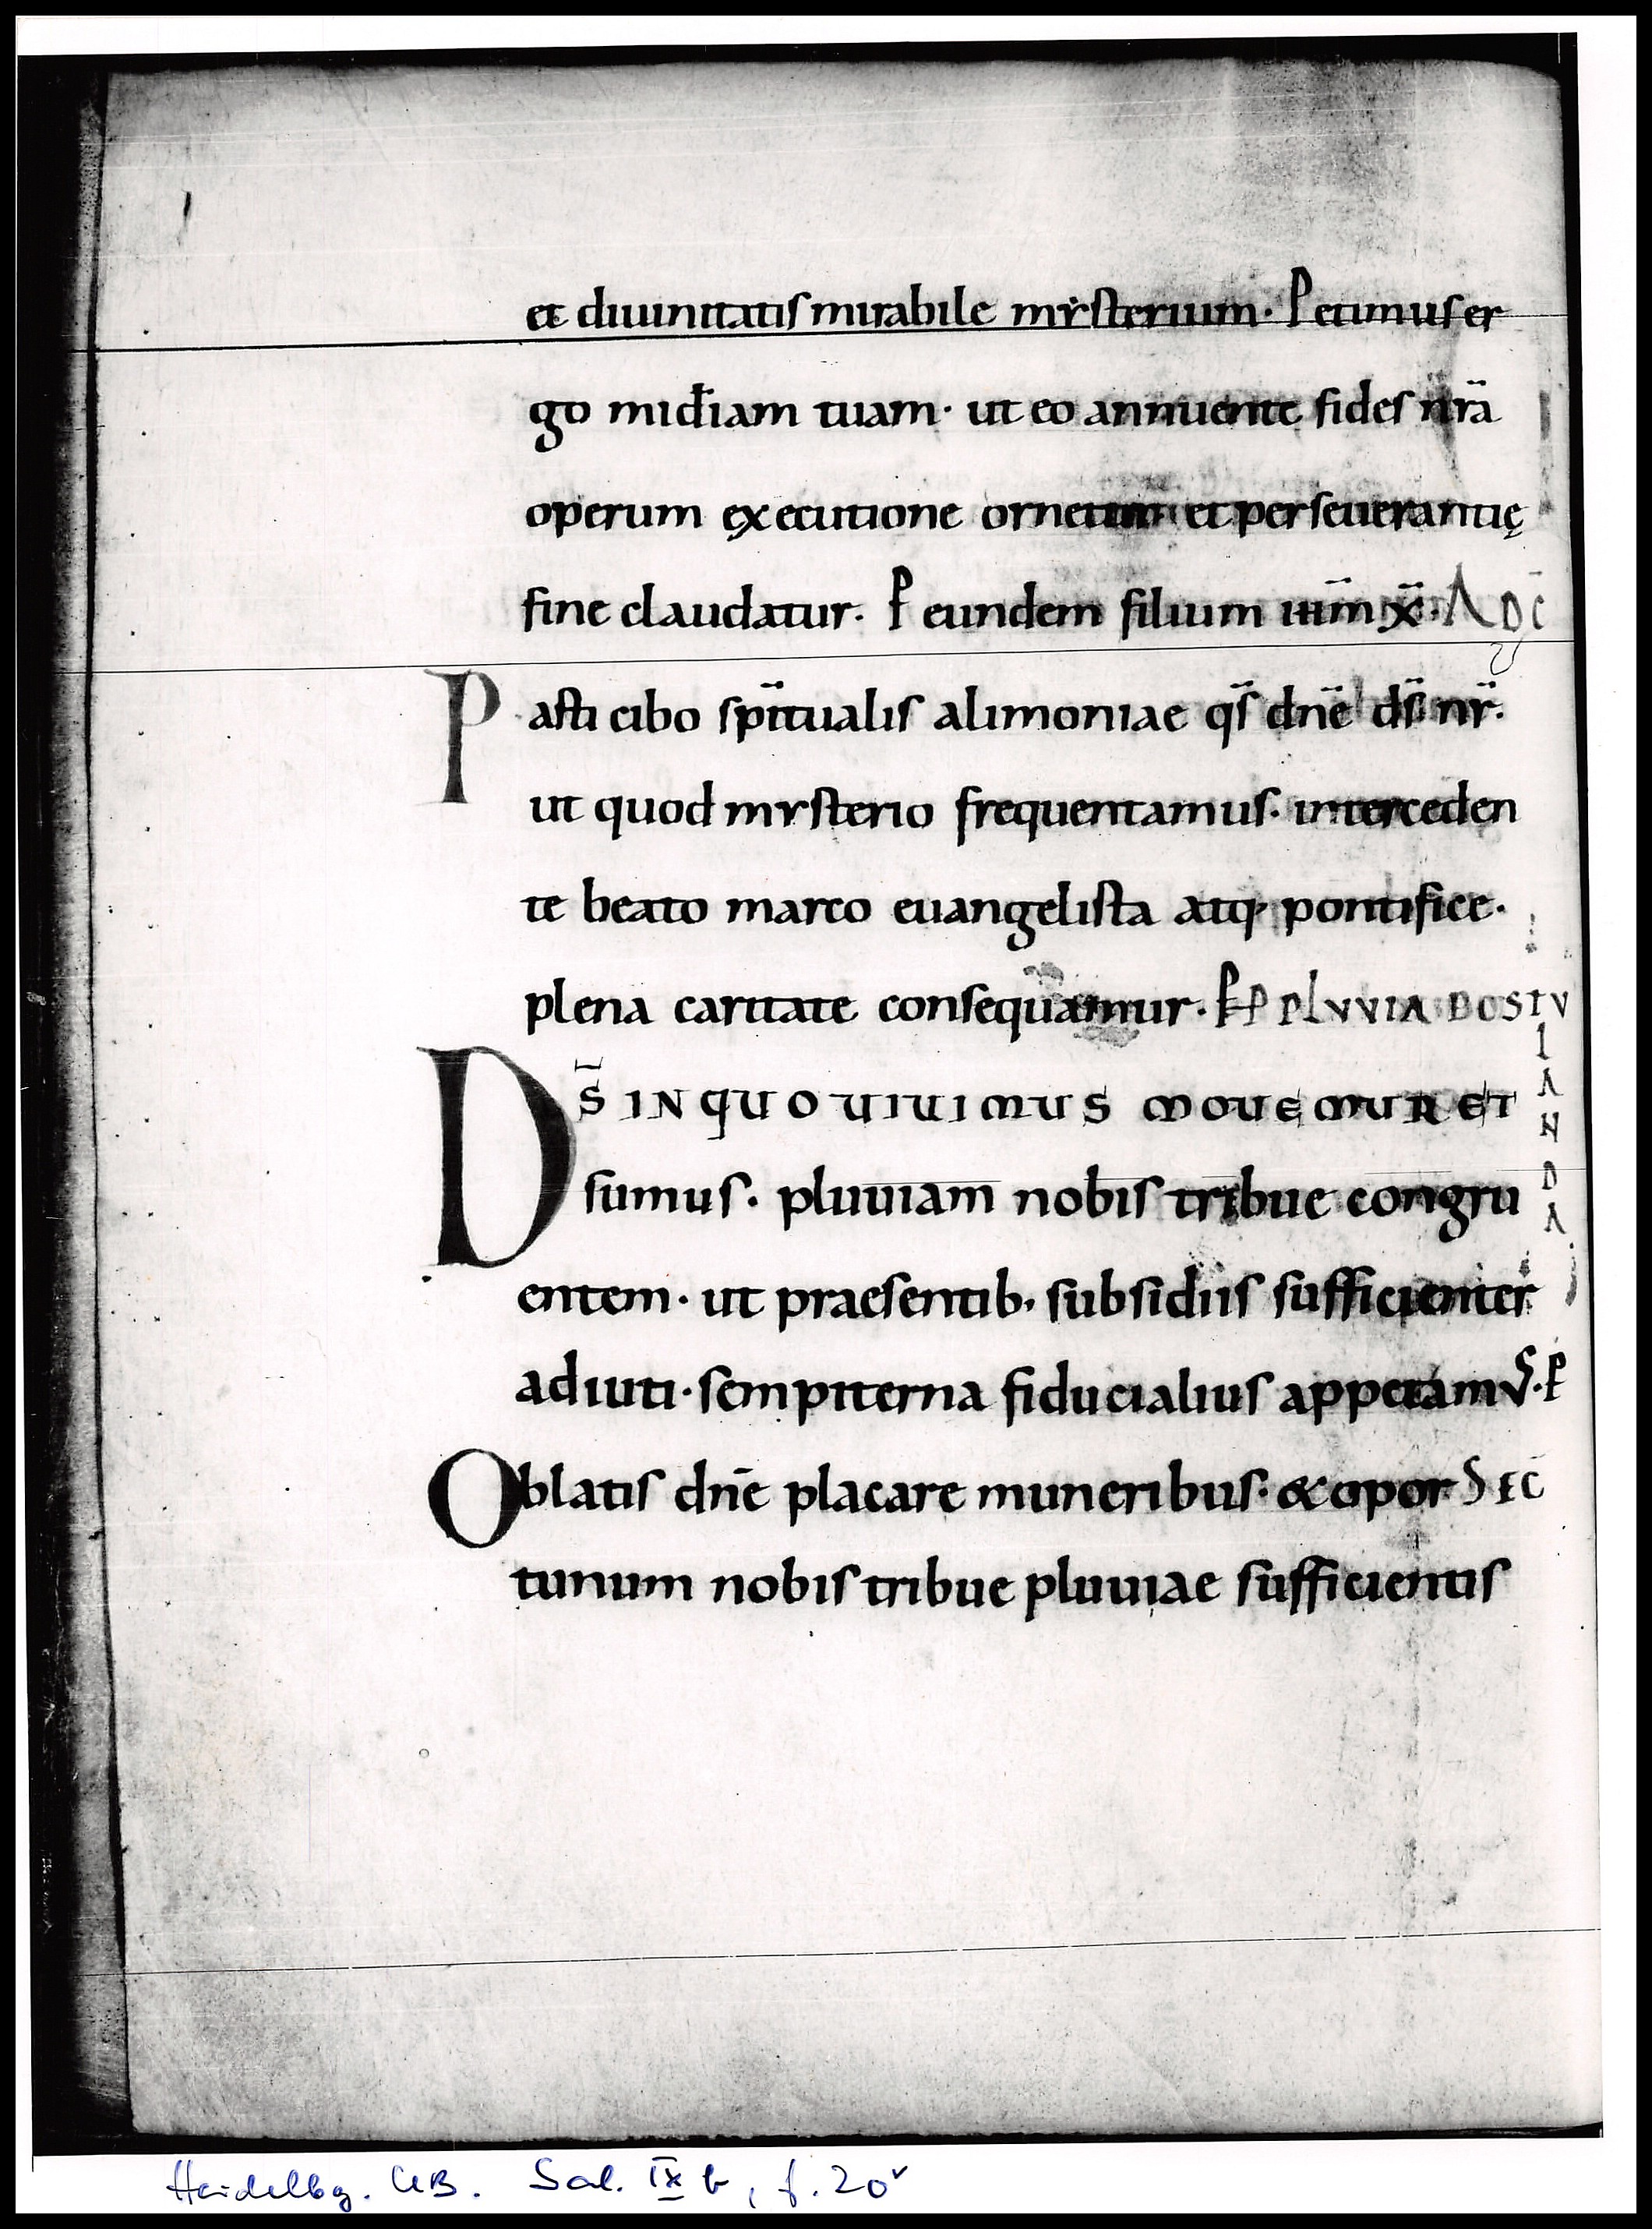 et diuinitatis mirabile mysterium· Petimus er
go mīdiam tuam· ut eo annuente fides nr̄a
operum executione ornetur· et perseuerantię
fine claudatur· P eundem filium tuūm xp̄m· AD C̄
Pasti cibo sp̄itualis alimoniae qs̄ dn̄e ds̄ nr̄·
ut quod mysterio frequentamus· interceden
te beato marco euangelista atq; pontifice·
plena caritate consequamur· PLVVIA POSTV
LANDA
DS̄ IN QUO UIUIMUS MOUEMUR ET
sumus· pluuiam nobis tribue congru
entem· ut praesentib; subsidiis sufficienter
adiuti· sempiterna fiducialius appetamus· P
Oblatis dn̄e placare muneribus· & opor SEC̄
tunum nobis tribue pluuiae sufficientis
Heidelbg. UB. Sal. IX b, f. 20v